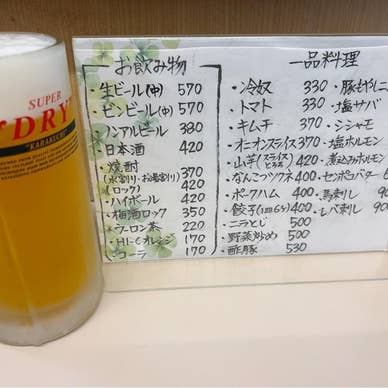 SUPER
"DRY"
"KARAKUCHI"
お飲み物
・生ビール(中) 570
・ゼンビール(中) 570
・ノンアルビール 380
・日本酒 420
・焼酎 370
(水割り・お湯割り)
(ロック) 420
・ハイボール 420
・梅酒ロック 350
・ウーロン茶 220
・Hi-Cオレンジ 170
・コーラ 170
一品料理
・冷奴 330
・トマト 330
・キムチ 370
・オニオンスライス 350
・山芋(スライス
とろろ) 400
・なんこつツクネ 400
・ポークハム 400
・餃子(1皿6ケ) 400
・ニラとじ 500
・野菜炒め 500
・酢豚 530
・豚もやし
・塩サバ
・シシャモ
・塩ホルモン
・煮込みホルモン
・馬刺し 90
・レバ刺し 90